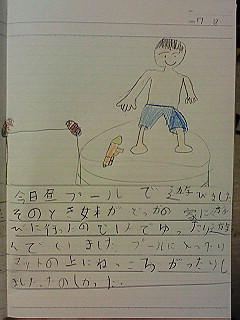 今日昼プールで遊びました
そのとき妹がどっかの家にあそ
びに行ったので1人でゆったり遊
んでいました プールに入ったり
マットの上にねっころがったりし
ました。たのしかった。